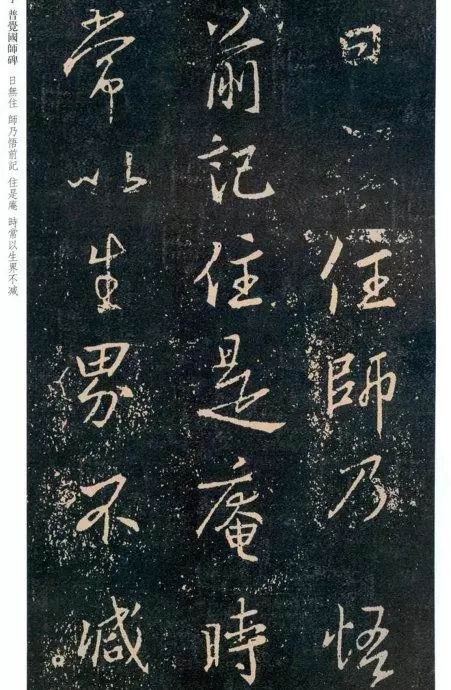 曰 住師乃悟
前記住是庵時
常以生界不減
普覺國師碑 日無住 師乃悟前記 住是庵 時常以生界不减